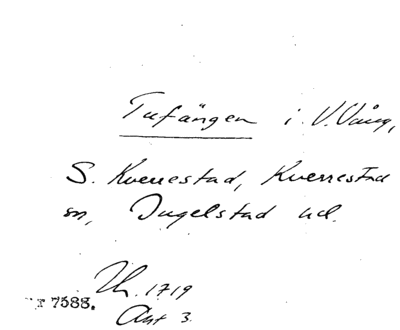 Tufängen i V. Vång,
S. Kverrestad, Kverrestad
sn, Ingelstad hd.
Lh. 1719
Akt 3.
NF 7588.